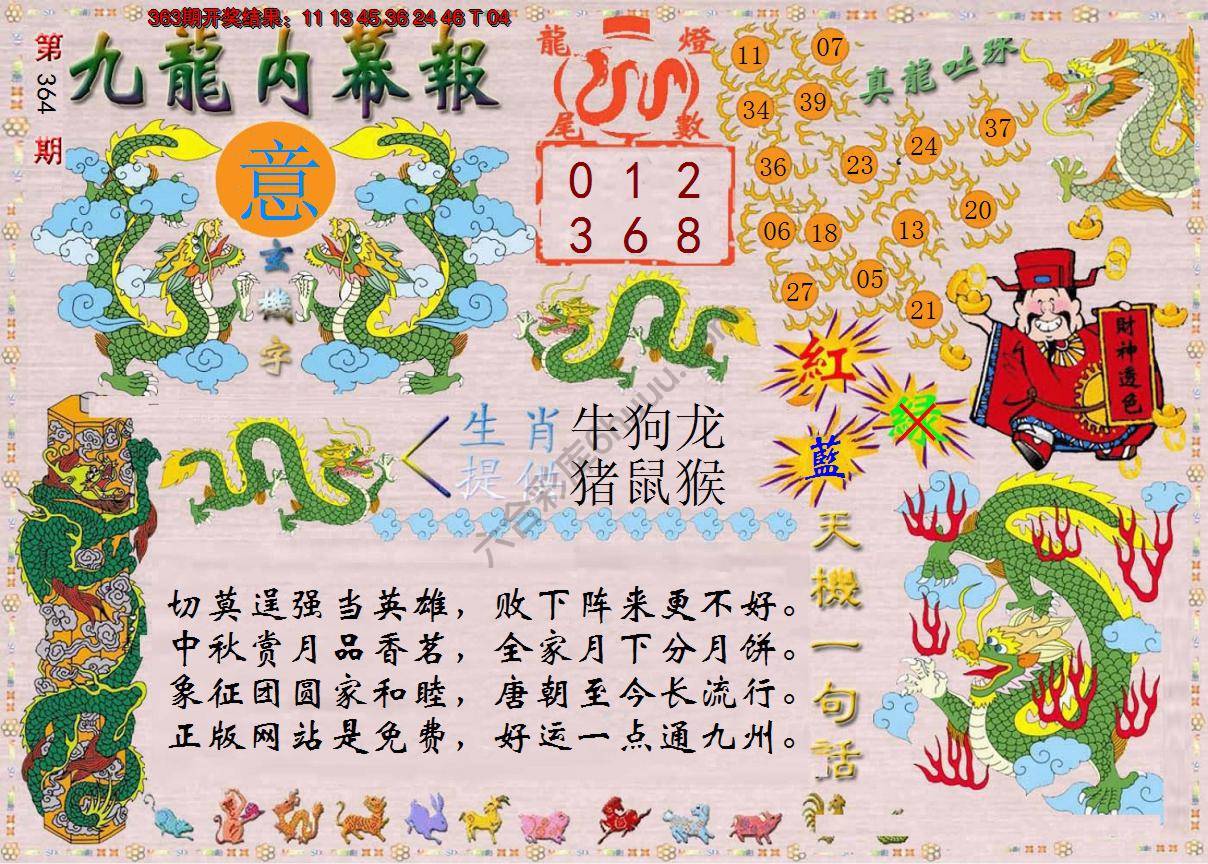 363期开奖结果：11 13 45 36 24 46 T 04
第364期
九龍内幕報
意
玄機字
龍燈
尾數
0 1 2
3 6 8
真龍吐珠
11 07
34 39
36 23 24 37
06 18 13 20
27 05 21
財神透色
紅
绿
藍
生肖 牛狗龙
提供 猪鼠猴
天機一句話
切莫逞强当英雄，败下阵来更不好。
中秋赏月品香茗，全家月下分月饼。
象征团圆家和睦，唐朝至今长流行。
正版网站是免费，好运一点通九州。